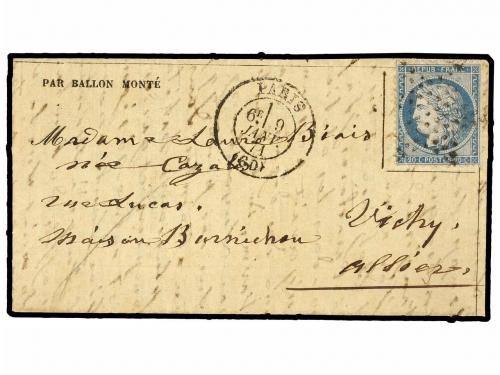 PAR BALLON MONTÉ
PARIS
6E 9
JANV
71
(60)
REPUB. FRANC.
20 C POSTE 20 C
Madame
née Cazal
rue Lucas.
Maison
Vichy
allier